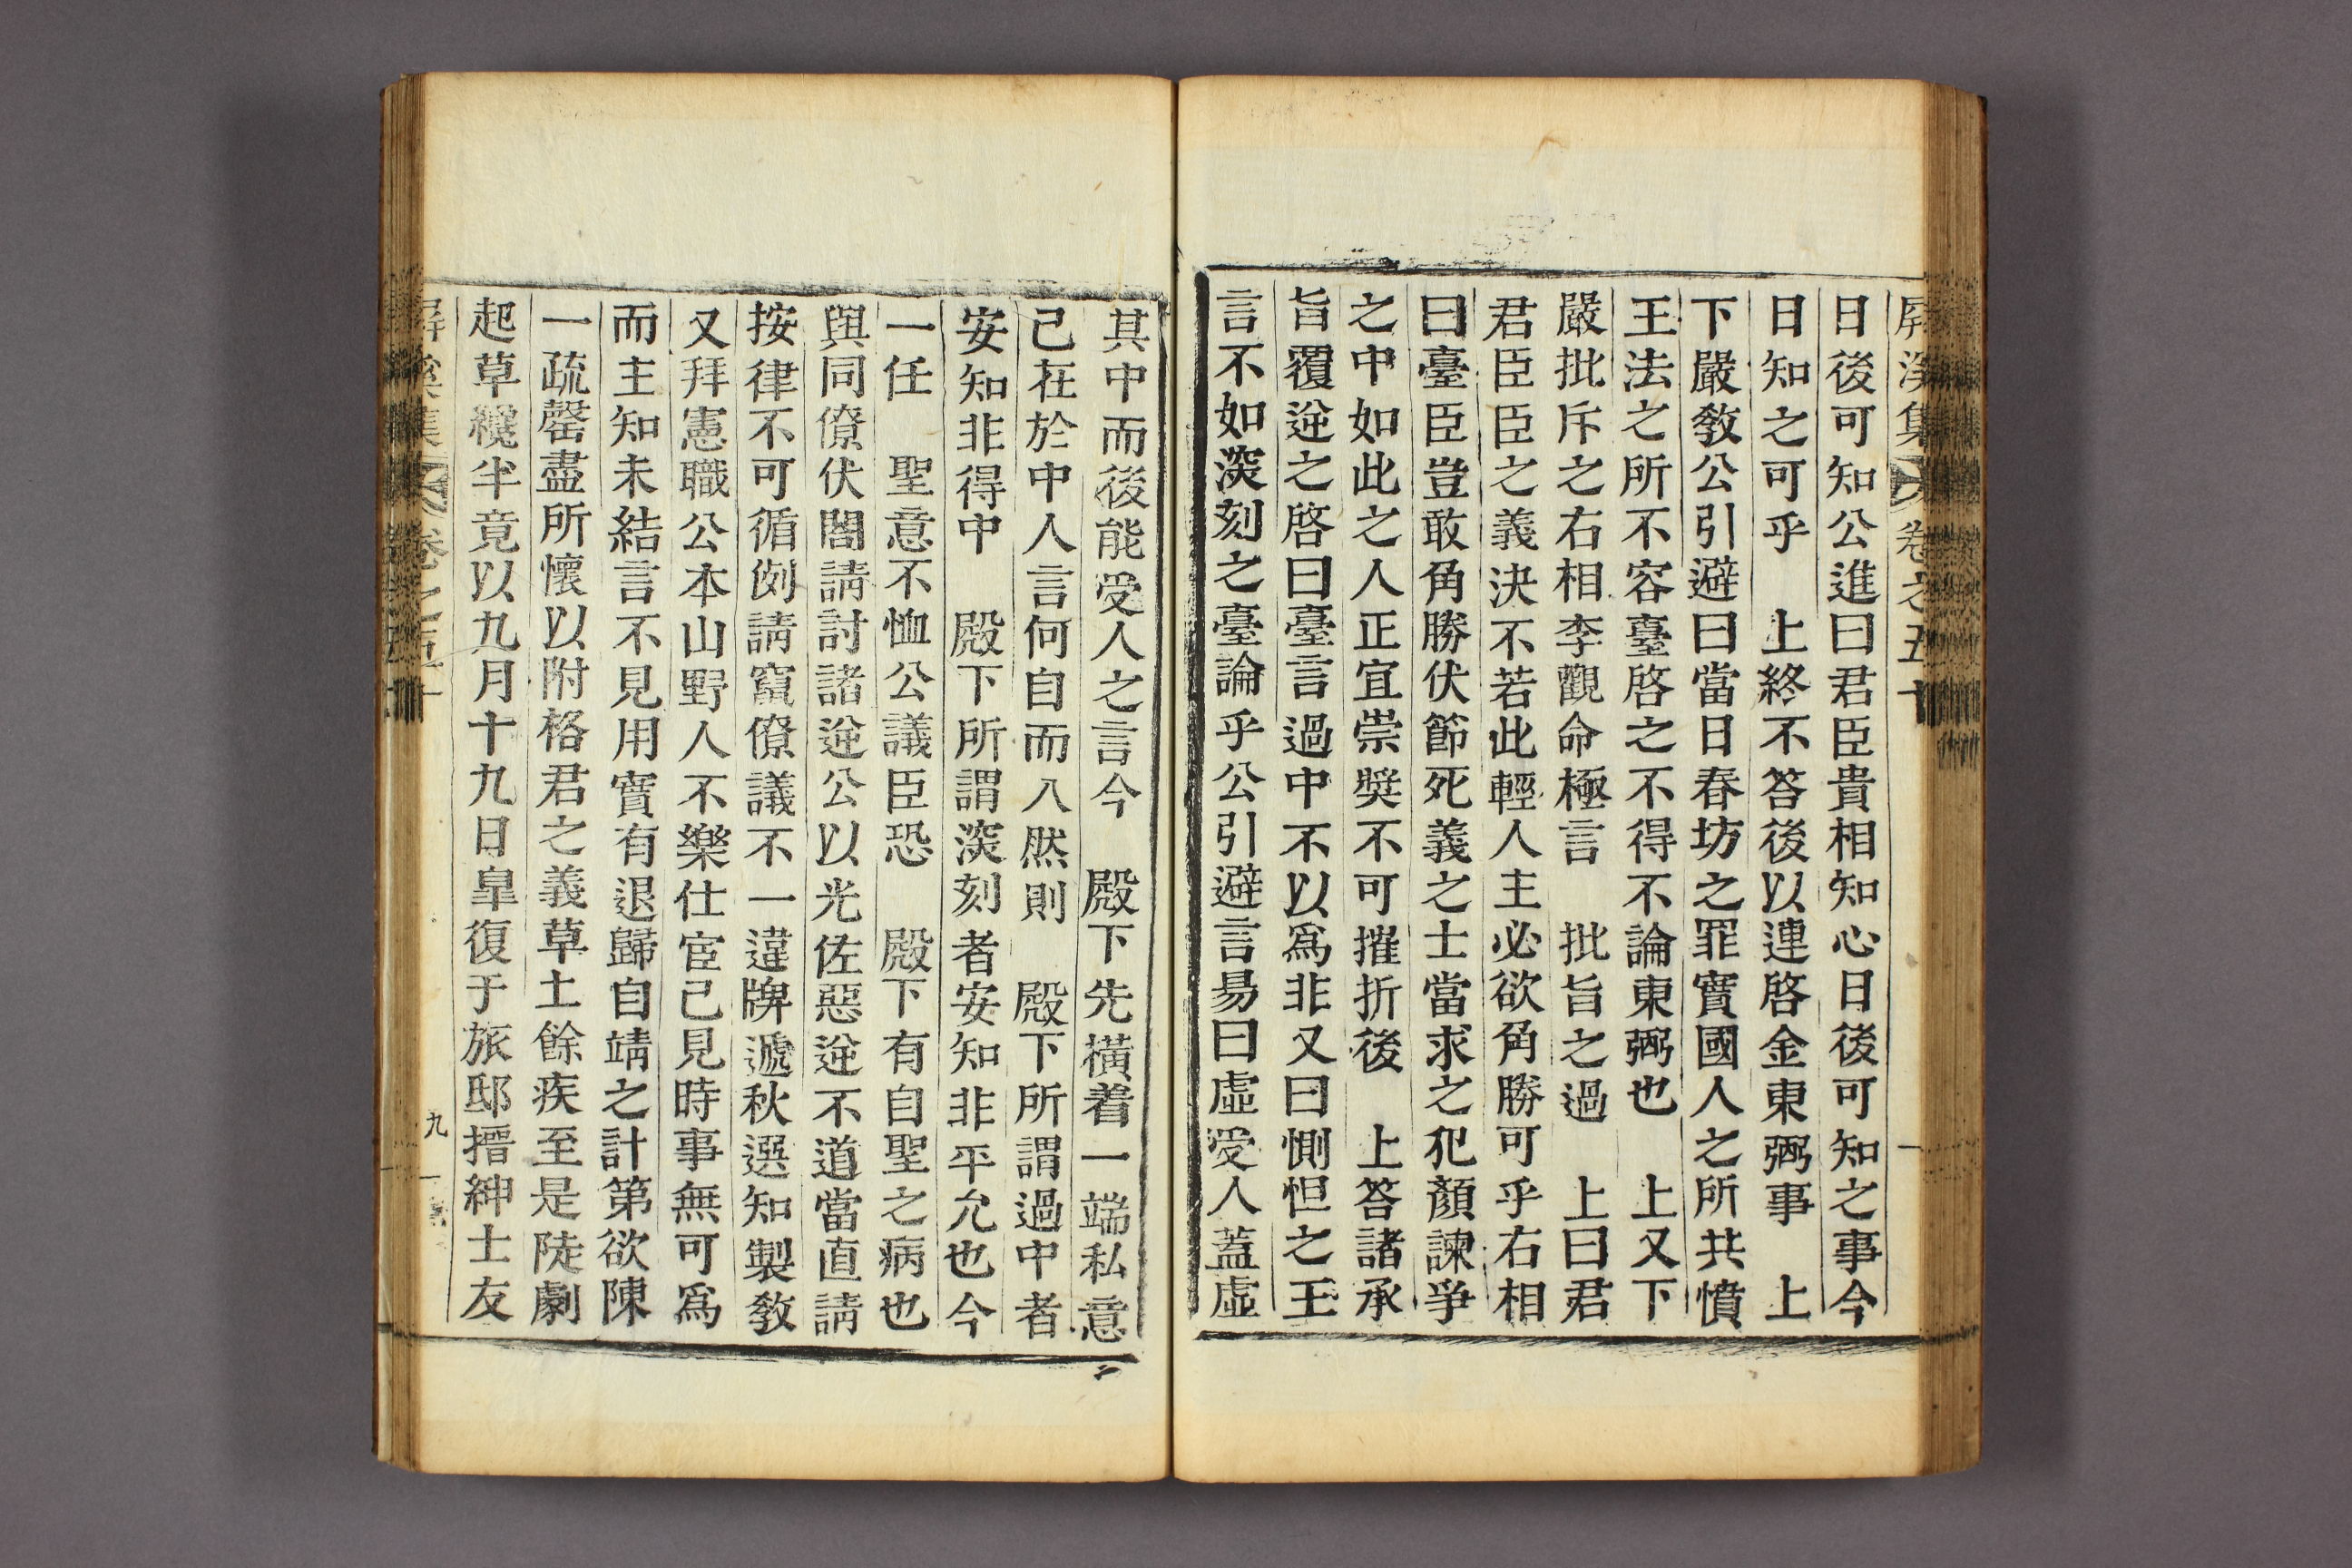 屏溪集 卷之五十
日後可知公進曰君臣貴相知心日後可知之事今
日知之可乎 上終不答後以連啓金東弼事 上
下嚴敎公引避曰當日春坊之罪實國人之所共憤
王法之所不容臺啓之不得不論東弼也 上又下
嚴批斥之右相李觀命極言 批旨之過 上曰君
君臣臣之義決不若此輕人主必欲角勝可乎右相
曰臺臣豈敢角勝伏節死義之士當求之犯顏諫爭
之中如此之人正宜崇奬不可摧折後 上答諸承
旨覆逆之啓曰臺言過中不以爲非又曰惻怛之王
言不如深刻之臺論乎公引避言易曰虛受人蓋虛
其中而後能受人之言今 殿下先橫着一端私意
己在於中人言何自而入然則 殿下所謂過中者
安知非得中 殿下所謂深刻者安知非平允也今
一任 聖意不恤公議臣恐 殿下有自聖之病也
與同僚伏閤請討諸逆公以光佐惡逆不道當直請
按律不可循例請竄僚議不一違牌遞秋選知製敎
又拜憲職公本山野人不樂仕宦己見時事無可爲
而主知未結言不見用實有退歸自靖之計第欲陳
一疏罄盡所懷以附格君之義草土餘疾至是陡劇
起草纔半竟以九月十九日皐復于旅邸搢紳士友
屏溪集 卷之五十 九